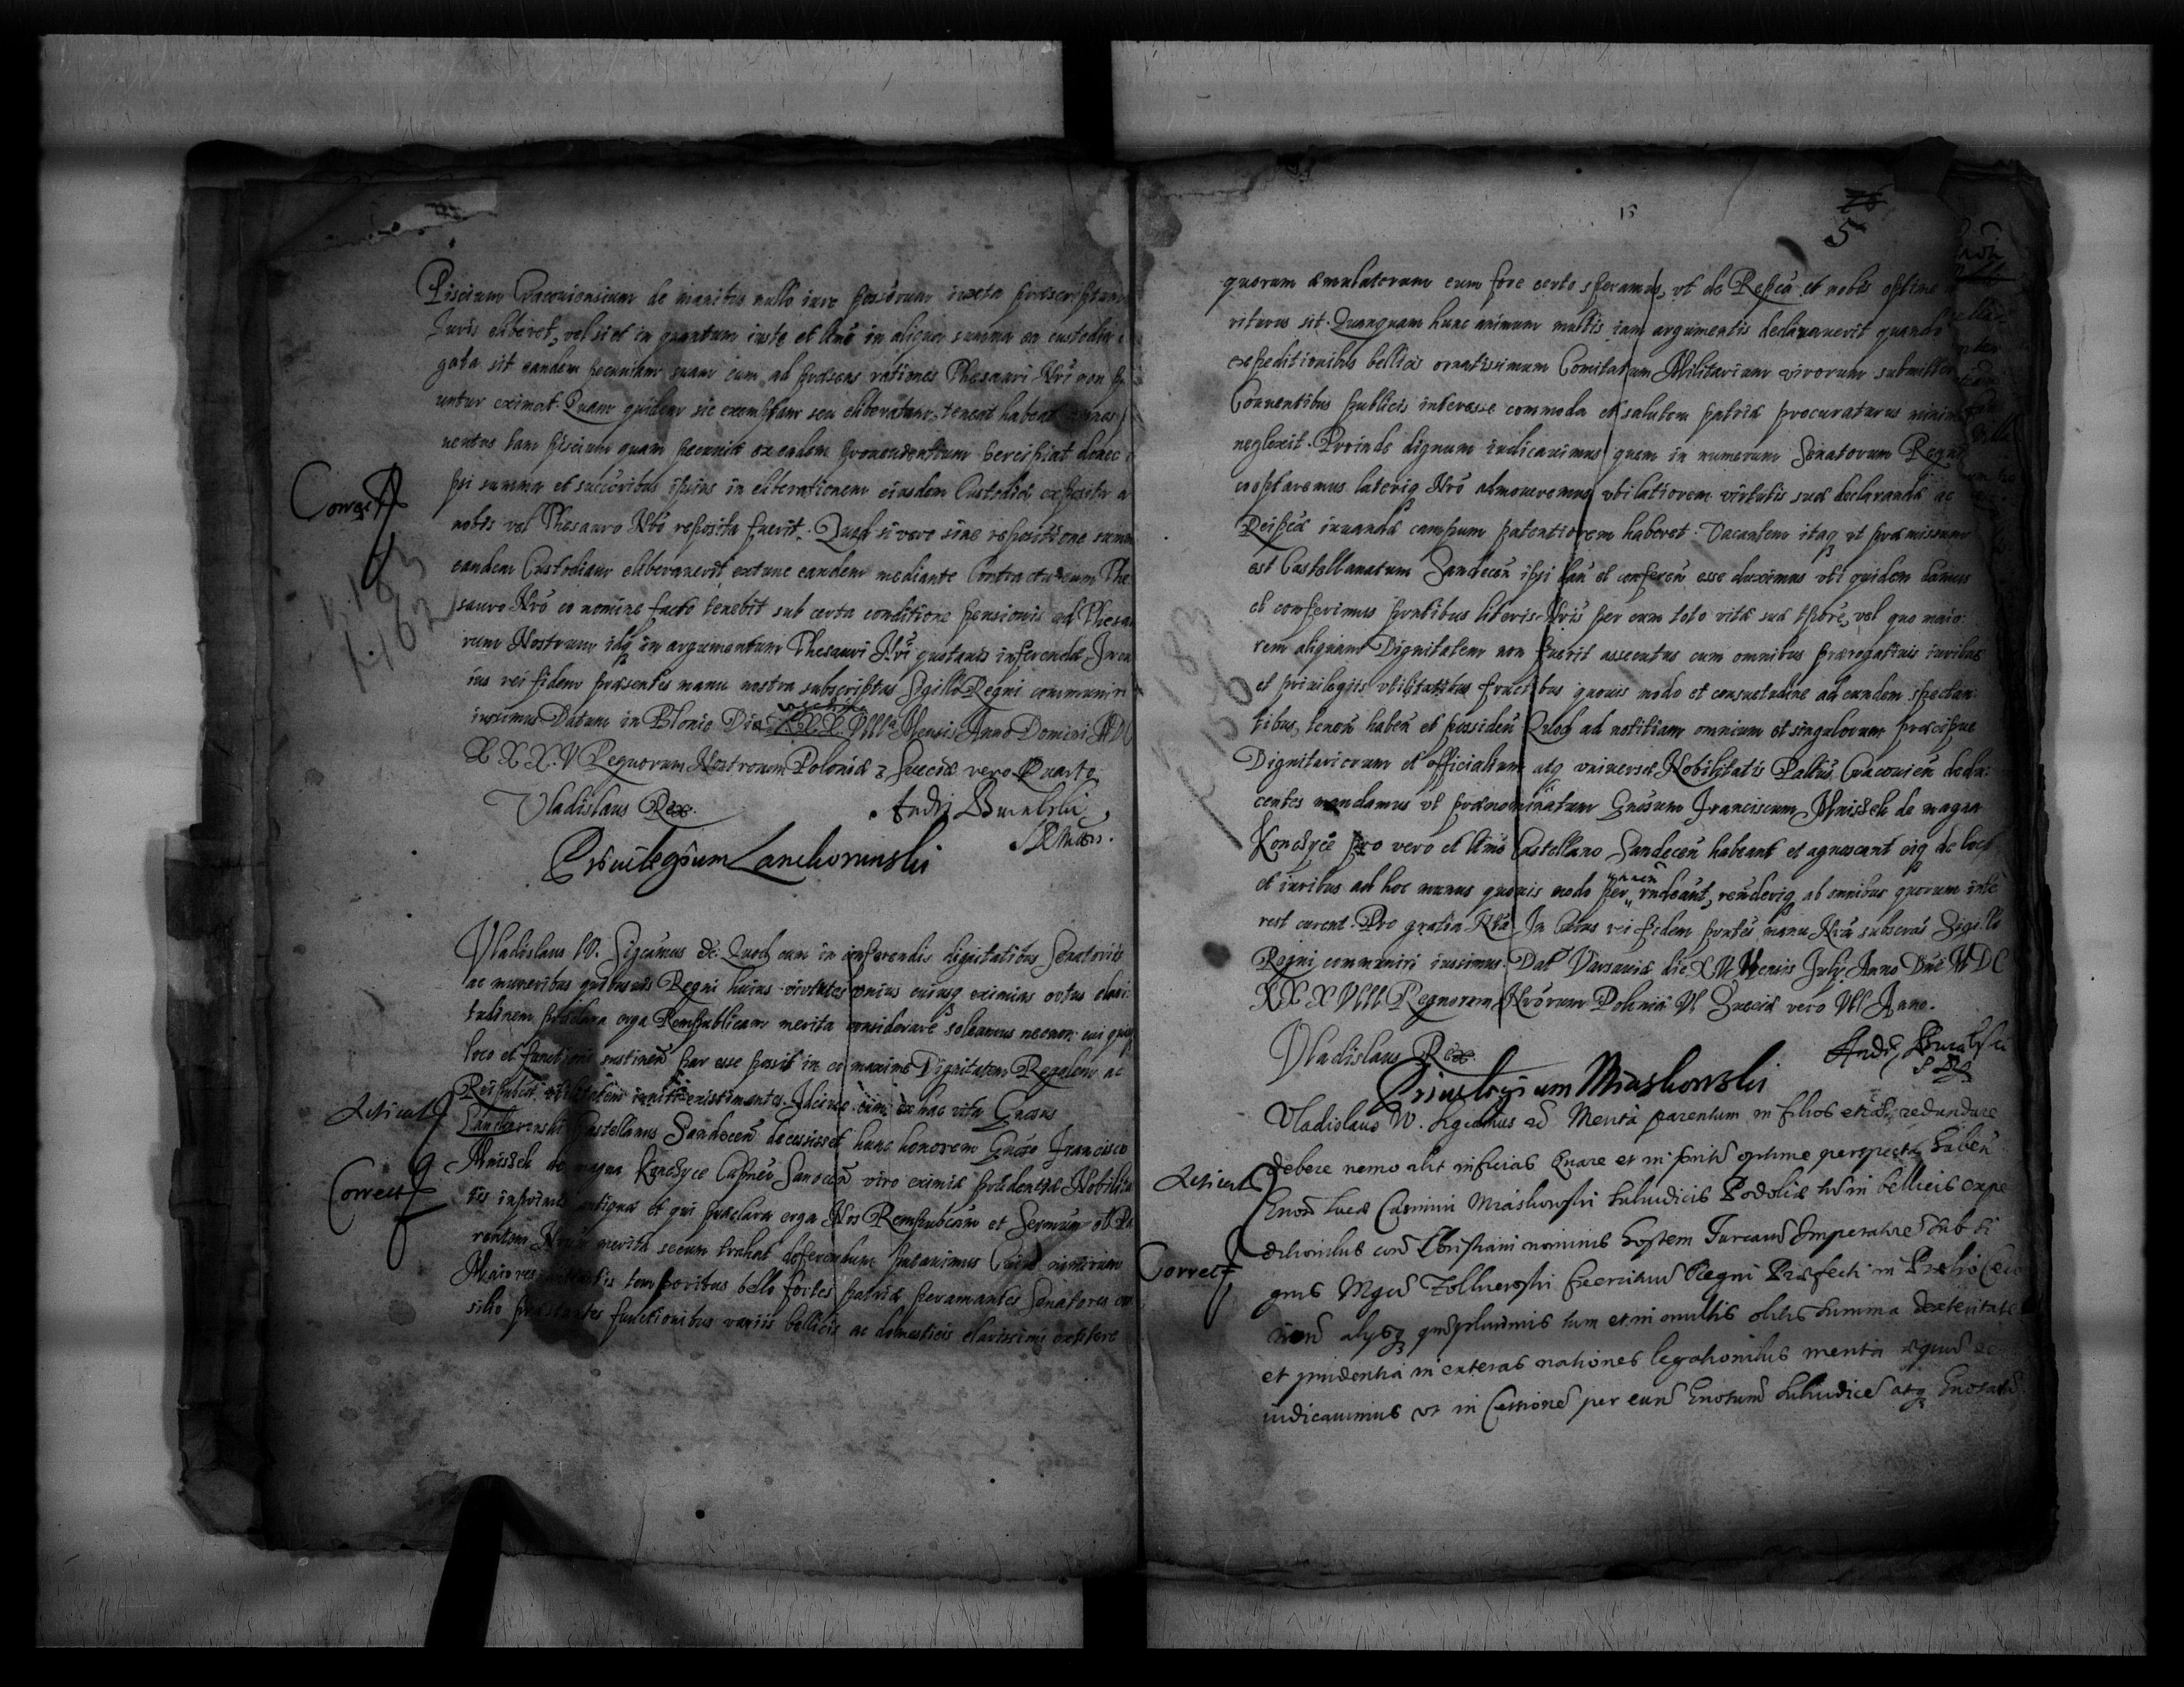 Piscium Cracouiensium de manibus nullo iure possorum iuxta præscriptum
Juris eliberet, vel si et in quantum iuste et ltīme in aliqua summa ea custodia
gata sit eandem pecuniam quam cum ad præsens rationes Thesauri Nri non
untur eximat. Quam quidem sic exemptam seu eliberatam teneat habeat omnes
uentus tam piscium quam pecuniæ ex eadem prouenientium percipiat donec
psi summa et succōribus ipsius in eliberationem eiusdem Custodiæ exposita a
nobis vel Thesauro Nro reposita fuerit. Quod si vero sine repositione summæ
eandem Custodiam eliberauerit extunc eandem mediante Contractu cum The
sauro Nrō eo nomine facto tenebit sub certa conditione pensionis ad Thesau
rum Nostrum idq in argumentum Thesauri Nri quotanis inferendæ In cu
ius rei fidem præsentes manu nostra subscriptas Sigillo Regni communiri
iussimus Datum in Blonie Die XXVIIII Mensis Anno Domini MDC
XXXV Regnorum Nostrorum Poloniæ & Sueciæ vero Quarto
Vladislaus Rex.
Priuilegium Lanckorunski
Correct
p. 183
f. 162
Vladislaus IV. Sigēmus &c. Quod cum in conferendis dignitatibus Senatoriis
ac muneribus quibusuis Regni huius virtutes vnius cuiusq eximias ortus clari
tudinem præclara erga Rempublicam merita considerare soleamus necnon cui quisq
loco et functioni sustinen par esse possit in eo maxime Dignitatem Regalem ac
Reipubcæ vtilitatem existimantes. Idcirco cum ex hac vita Gnosus
Lanckoronski Castellanus Sandecen decessisset hunc honorem Gnoso Francisco
Mniszek de magna Konczyce Capneo Sanocen viro eximiæ prudentiæ Nobilita
tis inprimis antiquæ et qui præclara erga Nos Rempubcam et Sermum ol Pa
rentem Nrum merita secum trahat deferendum putauimus Cuius nimirum
Maiores temporibus bello fortes patriæ peramantes Senatores con
silio præstantes functionibus variis bellicis ac domesticis clarissimi extitere
Correct
15
5
quorum æmulatorum eum fore certo speramus, vt de Repca et nobis optime
riturus sit. Quanquam hunc animum multis iam argumentis declarauerit quando
expeditionibus bellicis ornatissimum Comitatum Militarium virorum submitter
Conuentibus publicis interesse commoda et salutem patriæ procuraturus minime
neglexit. Proinde dignum iudicauimus quem in numerum Senatorum Regni
cooptaremus laterique Nro admoueremus vbi latiorem virtutis suæ declarandæ ac
Reipcæ iuuandæ campum patentiorem haberet. Vacantem itaq vt præmissum
est Castellanatum Sandecen ipsi dan et conferen esse duximus vti quidem damus
et conferimus pntibus literis Nris per eum toto vitæ suæ tpore, vel quo maio
rem aliquam Dignitatem non fuerit assecutus cum omnibus prærogatiuis iuribus
et priuilegiis vtilitatibus fructibus quouis modo et consuetudine ad eundem spectan
tibus, tenen haben et possiden Quod ad notitiam omnium et singulorum præcipue
Dignitariorum et officialium atq vniuersæ Nobilitatis Paltus Cracouien dedu
centes mandamus vt prænominatum Gnosum Franciscum Mniszek de magna
Konczyce pro vero et ltimo Castellano Sandecen habeant et agnoscant eiq de loco
et iuribus ad hoc munus quouis modo per rndeant, renderiq ab omnibus quorum inte
rest curent. Pro gratia Nra In Cuius rei fidem pntes manu Nra subscras Sigillo
Regni communiri iussimus. Dat Varsauiæ die XV Mensis July Anno Dni MDC
XXXVIIII Regnorum Nrorum Poloniæ VI Sueciæ vero VII Anno.
Vladislaus Rex
Priuilegium Miaskowski
Vladislaus IV. Sigēmus &c Merita parentum in filios etiam redundare
debere nemo abit inficias Quare et in optime perspecta haben
Gnosi Lucæ Casimiri Miaskowski Subiudicis Podoliæ tum in bellicis expe
ditionibus contra Christiani nominis hostem Turcarum Imperatore sub si
gnis Mgci Zolkiewski Exercituum Regni Præfecti in Prælio Ceco
riens alysq quamplurimis tum et in multis obitis summa dexteritate
et prudentia in exteras nationes legationibus merita æquum
iudicauimus vt in Cessione per eund Gnosum Subiudice atq Gnosam
Correct